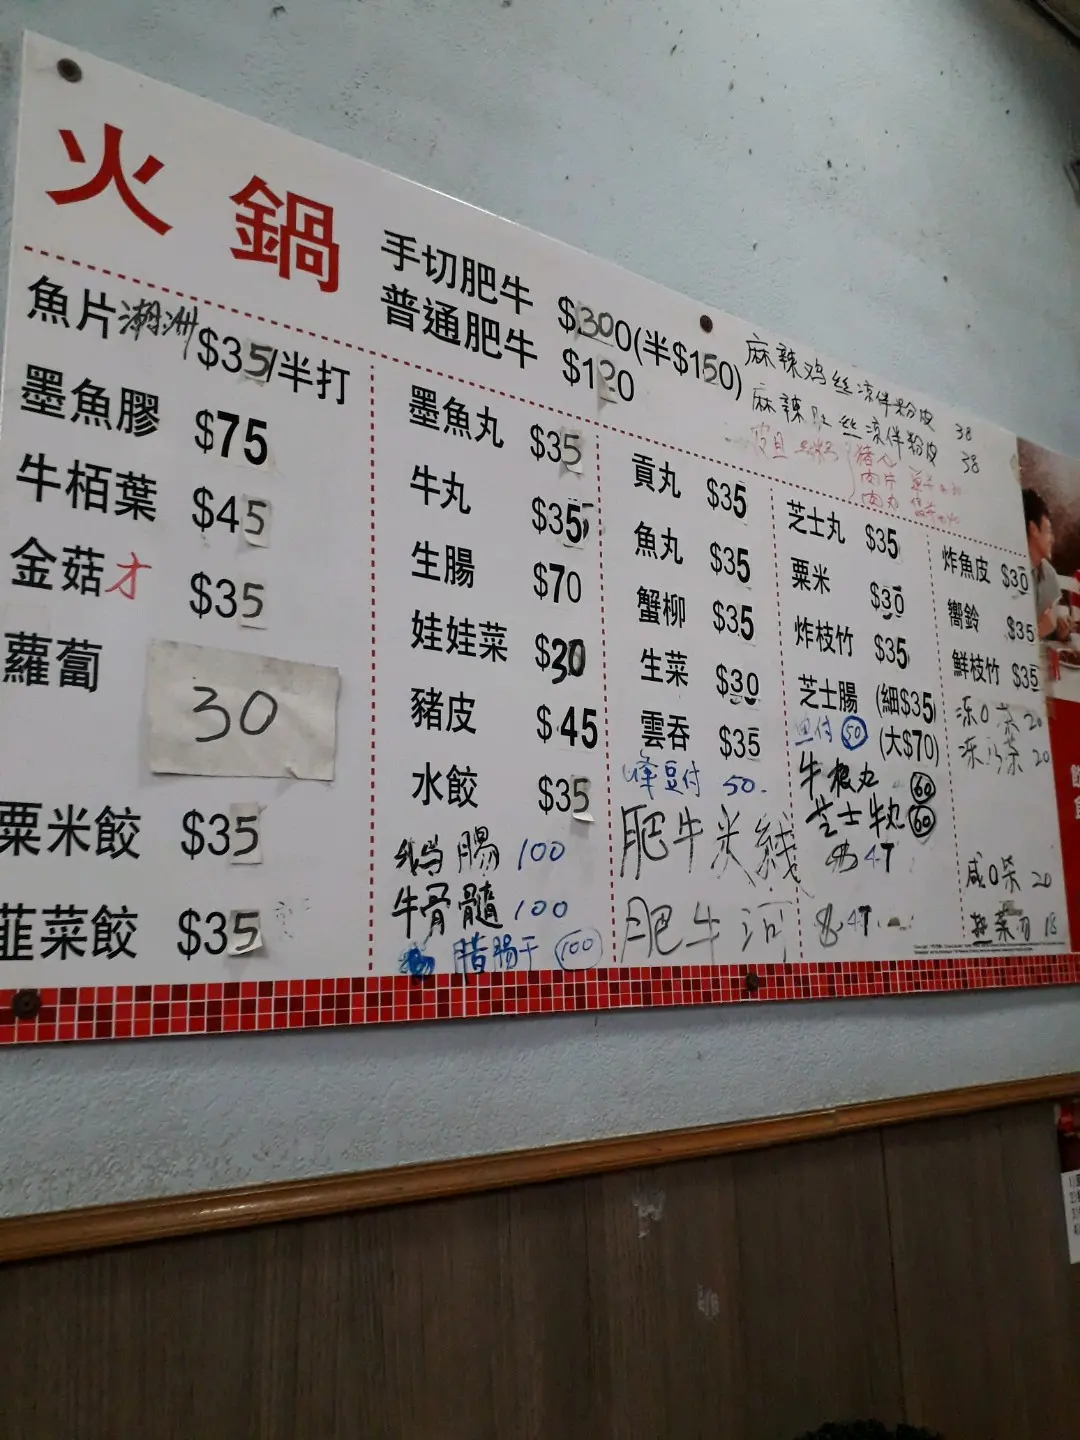 火鍋
手切肥牛 $300(半$150)
普通肥牛 $120
麻辣鸡丝凉伴粉皮 38
麻辣 丝凉伴粉皮 38
皮旦
肉片
肉丸
魚片潮洲 $35/半打
墨魚膠 $75
牛栢葉 $45
金菇才 $35
蘿蔔 30
粟米餃 $35
韮菜餃 $35
墨魚丸 $35
牛丸 $35
生腸 $70
娃娃菜 $30
豬皮 $45
水餃 $35
腸 100
牛骨髓 100
腊腸干 100
貢丸 $35
魚丸 $35
蟹柳 $35
生菜 $30
雲吞 $35
豆付 50.
肥牛米綫 47
肥牛河 47
芝士丸 $35
粟米 $30
炸枝竹 $35
芝士腸 (細$35)
(大$70)
魚付 50
牛根丸 60
芝士牛丸 60
炸魚皮 $30
嚮鈴 $35
鮮枝竹 $35
冻0茶 20
冻 茶 20
咸0柴 20
18